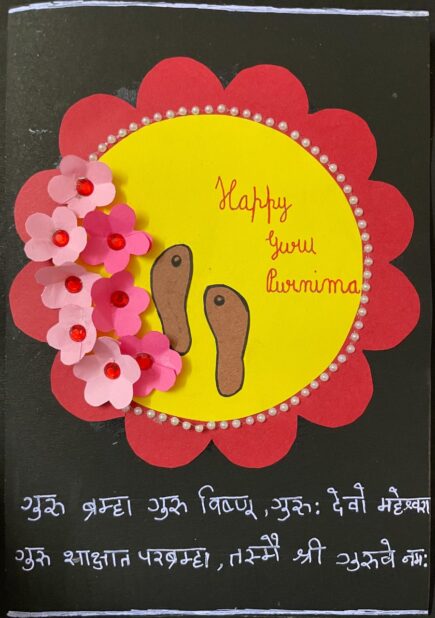 Happy
Guru
Purnima
गुरु ब्रम्हा गुरु विष्णू, गुरु: देवो महेश्वरा
गुरु साक्षात परब्रम्हा, तस्मै श्री गुरुवे नम: